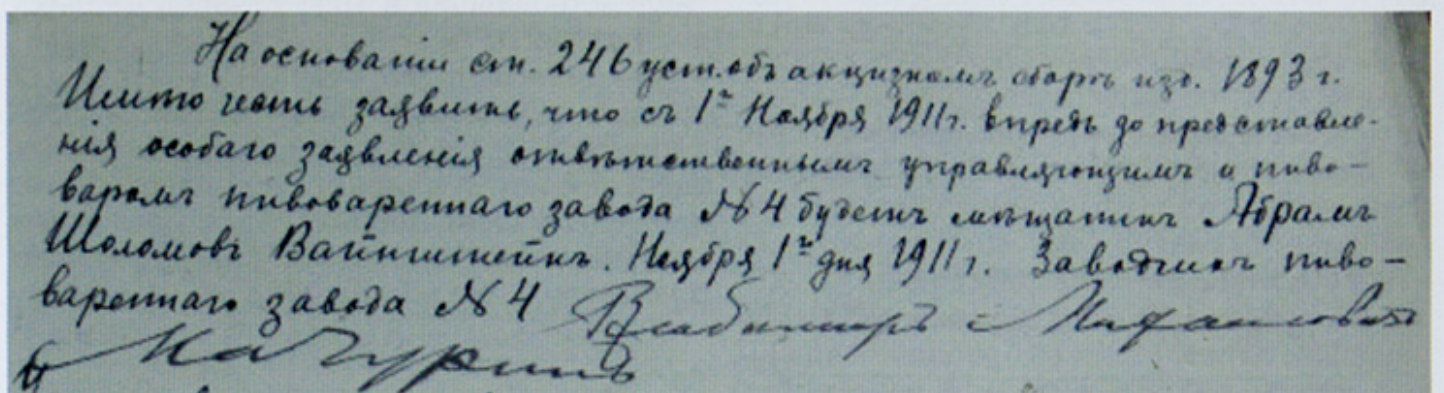 На основаніи ст. 246 уст. объ акцизномъ сборѣ изд. 1893 г.
Имѣю честь заявить, что съ 1го Ноября 1911 г. впредь до представле-
нія особаго заявленія отвѣтственнымъ управляющимъ и пиво-
варомъ пивовареннаго завода № 4 будетъ мѣщанинъ Абрамъ
Шоломовъ Вайнштейнъ. Ноября 1го дня 1911 г. Заводчикъ пиво-
вареннаго завода № 4 Владимиръ Михайловъ
Мачуринъ